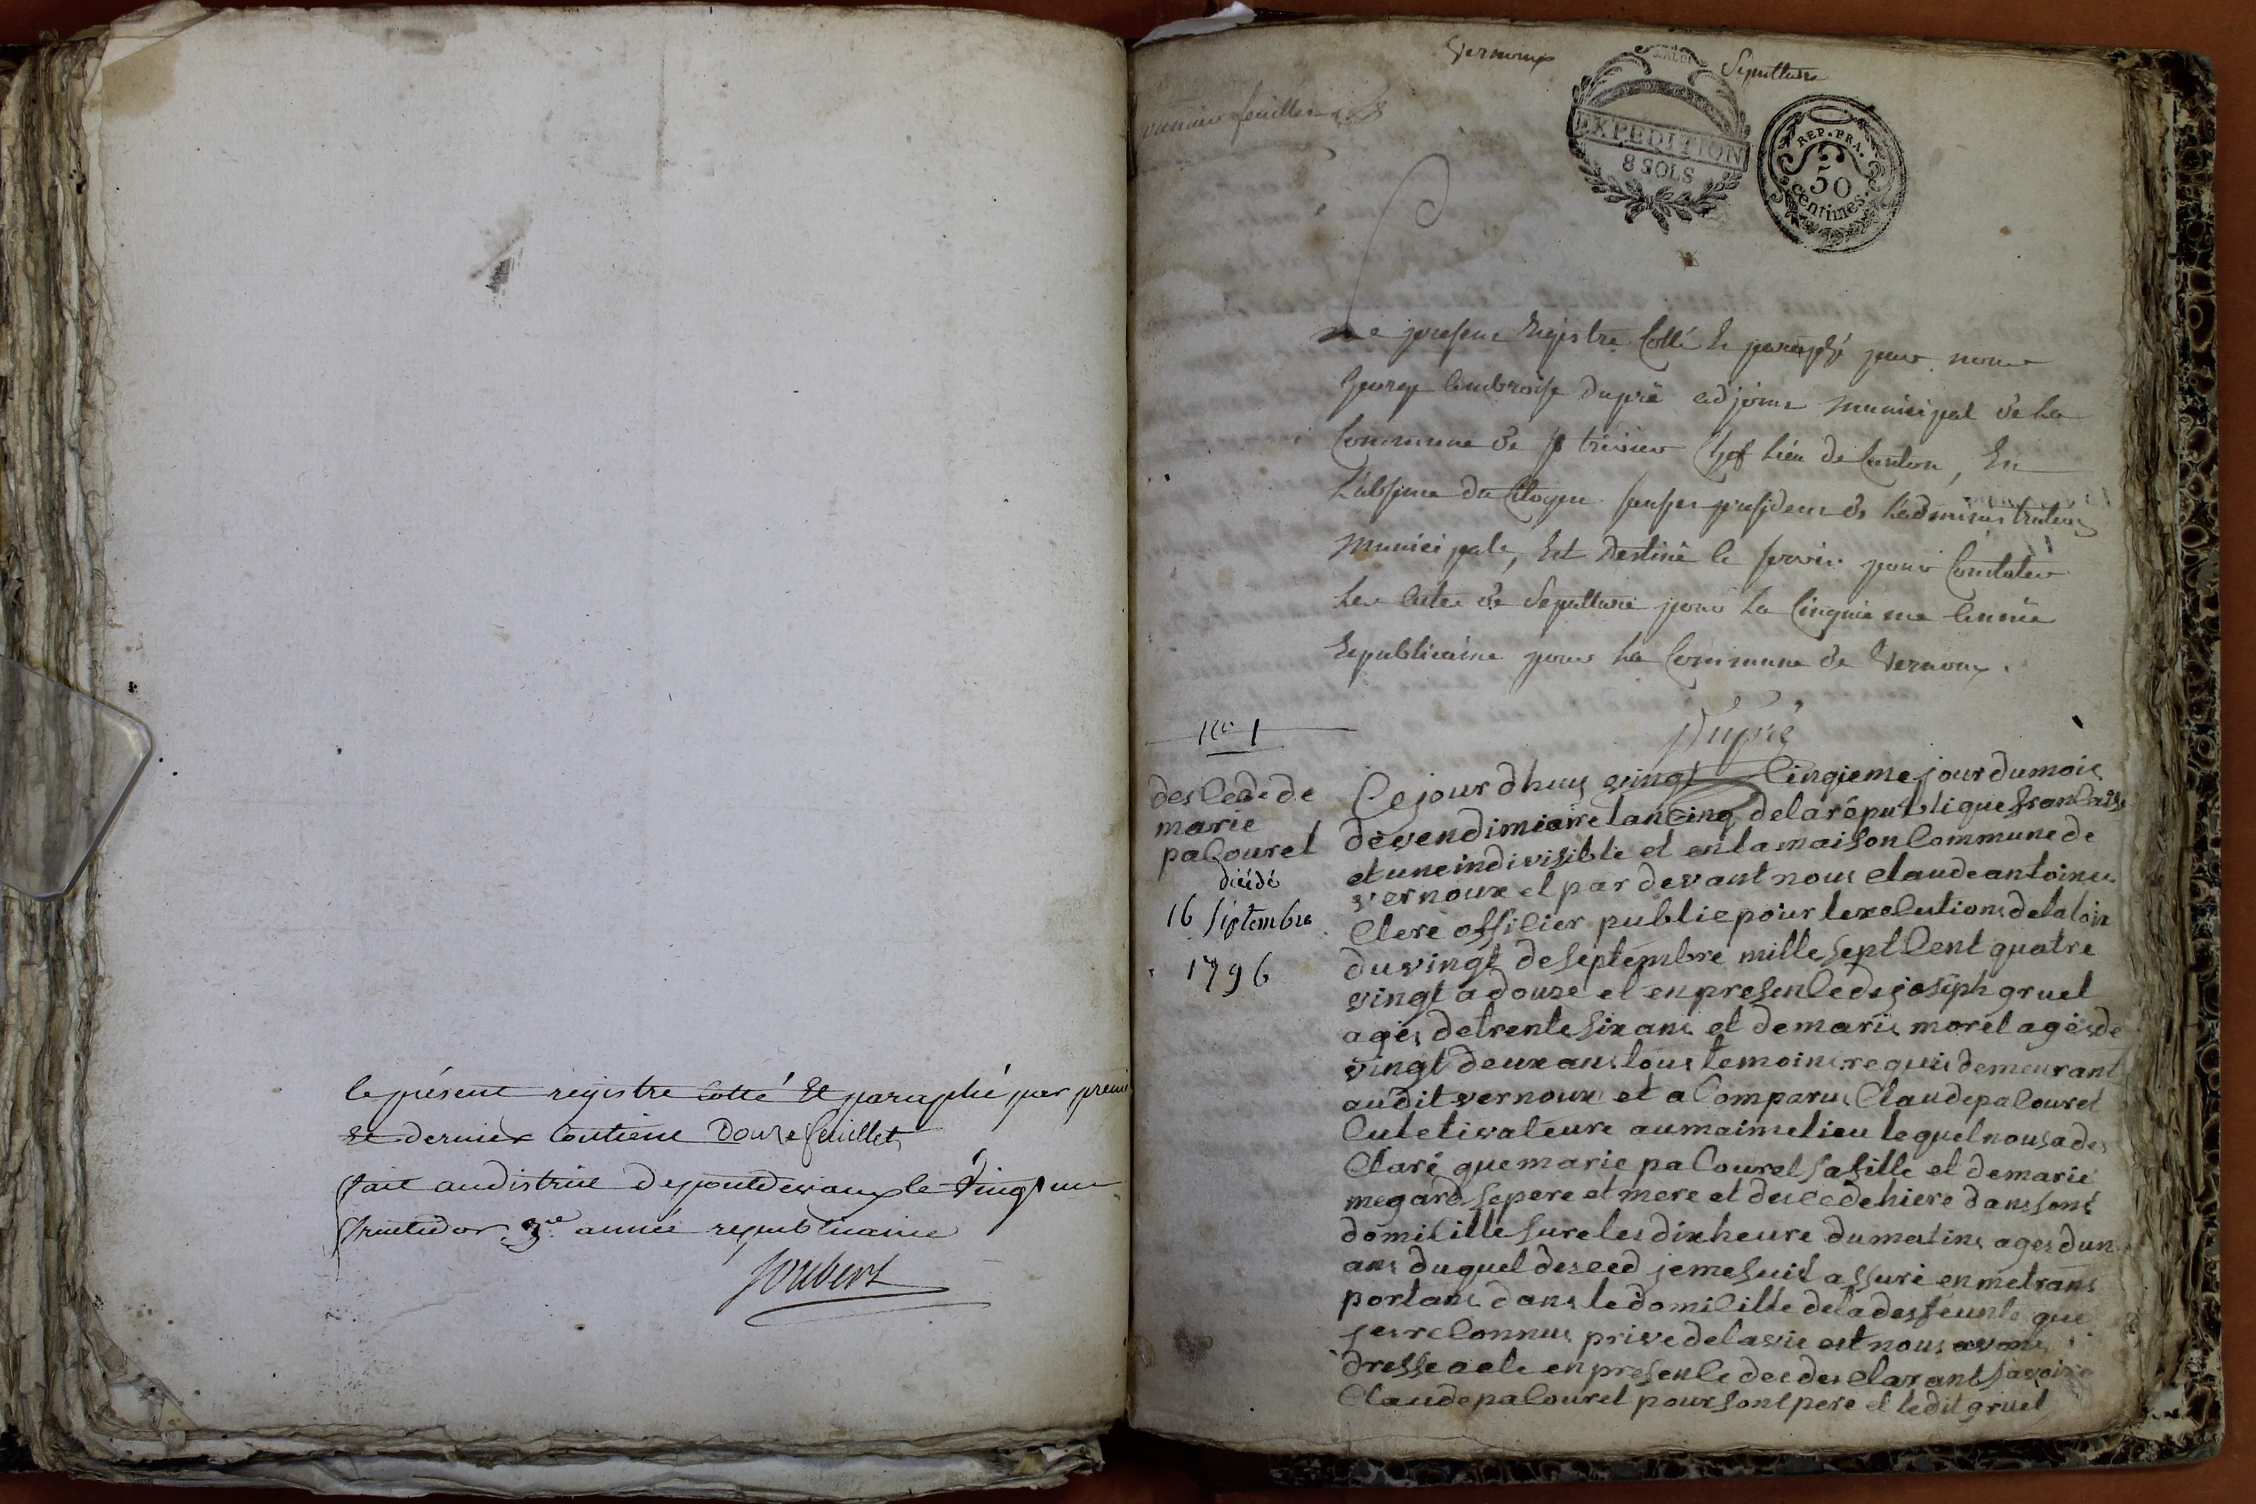 le présent registre cotté Et paraphé par premier
Et dernier contient Douze feuillets
fait au district de pontdevaux le Vingt un
fructidor 3e. année republicaine
Joubert
Vernoux
Sepulture
EXPEDITION
8 SOLS
REP. FRA.
50
Centimes.
feuillet
Le present Registre Cotté Et paraphé par nous
George Ambroise Dupré adjoint Municipal de La
Commune de St trivier Chef Lieu de Canton, En
L'absence du Citoyen president de L'administration
Municipale, Est Destiné a servir pour Constater
Les actes de Sepulture pour La Cinquieme année
Republicaine pour La Commune de Vernoux.
Dupré
No 1
desCede de
marie
paCouret
décédé
16 Septembre
1796
Cejourdhuy vingt Cinqieme jour du mois
de vendimiaire lan Cinq de la republique franCaise
et une indivisible et en la maison Commune de
vernoux et par devant nous Claude antoine
Clere offiCier public pour lexeCutions de la loix
du vingt de septembre mille sept Cent quatre
vingt a douze et en presenCe de joseph gruel
ages de trente six ans et de marie morel ages de
vingt deux ans tous temoins requis demeurant
audit vernoux et a Comparus Claude paCouret
Culetivateure au maime lieu lequel nous a des
Claré que marie paCouret sa fille et de marie
megard se pere et mere et desCede hiere dans sont
domiCille sure les dix heure du matins ages dun
ans duquel desced je me suit assuré en me trans
portans dans le domiCille de la desfeunte que
jes reConnus prive de la vie est nous avons
dresse aCte en presenCe des desClarant savoire
Claude paCouret pour sont pere et ledit gruel